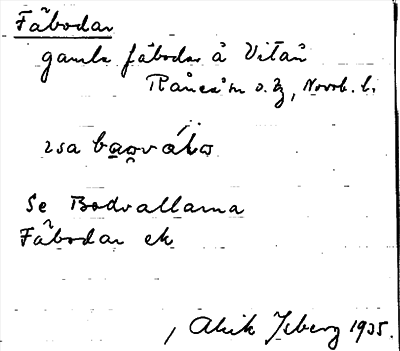 Fäbodar
gamla fäbodar å Vitån
Råneå sn o. tg, Norrb. l.
Se Bodvallarna
Fäbodar ek
, Isberg 1935.